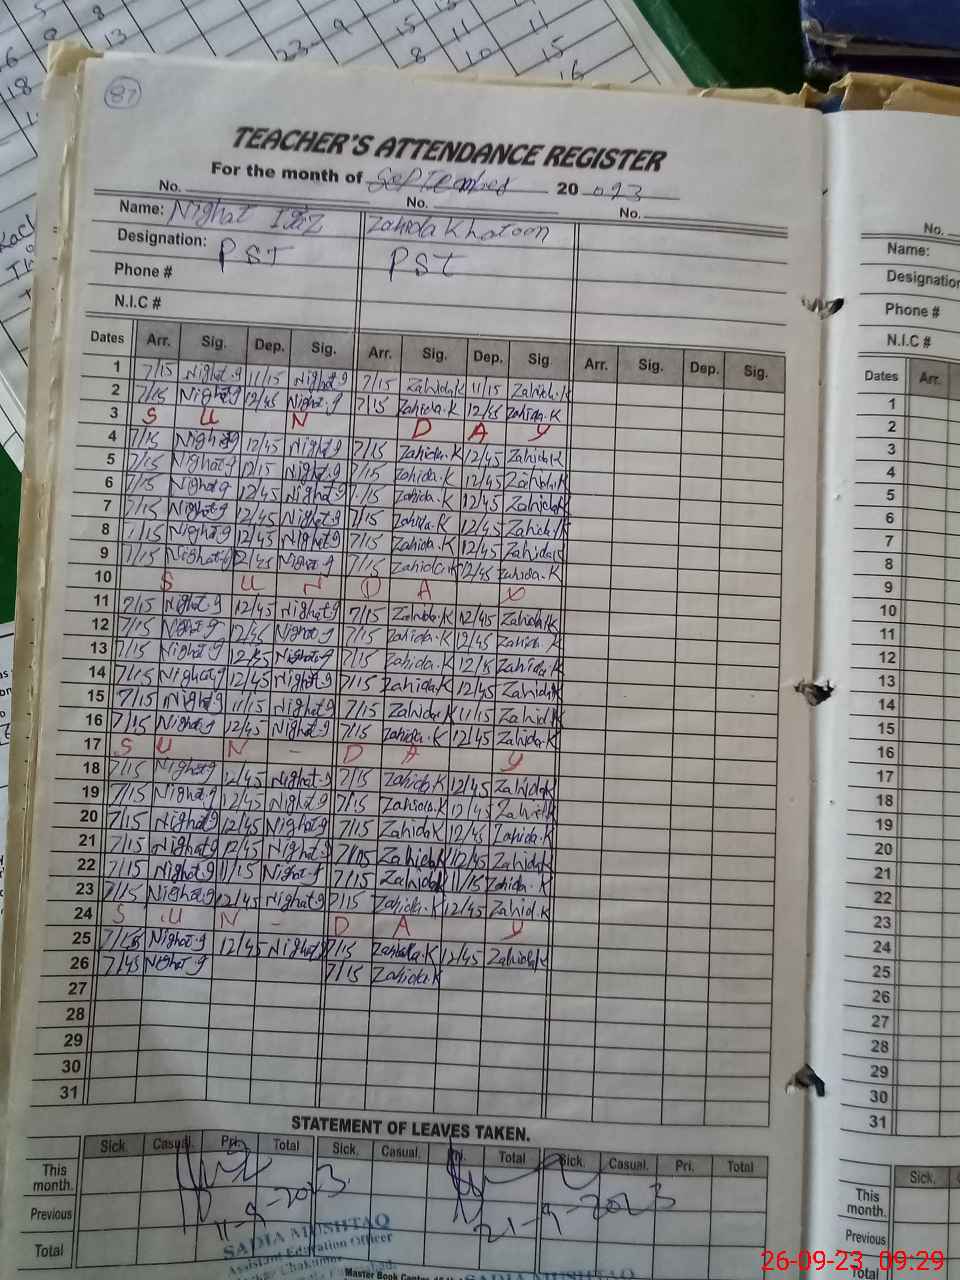 87
TEACHER'S ATTENDANCE REGISTER
For the month of September 20 023
No. No. No.
Name: Nighat Zahida Khatoon
Designation: PST PST
Phone #
N.I.C #
Dates Arr. Sig. Dep. Sig. Arr. Sig. Dep. Sig. Arr. Sig. Dep. Sig.
1 7/15 Nighat.g 11/15 Nighat.g 7/15 Zahida.K 11/15 Zahida.K
2 7/15 Nighat.g 12/45 Nighat.g 7/15 Zahida.K 12/45 Zahida.K
3 S U N D A Y
4 7/15 Nighat.g 12/45 Nighat.g 7/15 Zahida.K 12/45 Zahida.K
5 7/15 Nighat.g 12/15 Nighat.g 7/15 Zahida.K 12/45 Zahida.K
6 7/15 Nighat.g 12/45 Nighat.g 7/15 Zahida.K 12/45 Zahida.K
7 7/15 Nighat.g 12/45 Nighat.g 7/15 Zahida.K 12/45 Zahida.K
8 7/15 Nighat.g 12/45 Nighat.g 7/15 Zahida.K 12/45 Zahida.K
9 7/15 Nighat.g 12/45 Nighat.g 7/15 Zahida.K 12/45 Zahida.K
10 S U N D A Y
11 7/15 Nighat.g 12/45 Nighat.g 7/15 Zahida.K 12/45 Zahida.K
12 7/15 Nighat.g 12/45 Nighat.g 7/15 Zahida.K 12/45 Zahida.K
13 7/15 Nighat.g 12/45 Nighat.g 7/15 Zahida.K 12/45 Zahida.K
14 7/15 Nighat.g 12/45 Nighat.g 7/15 Zahida.K 12/45 Zahida.K
15 7/15 Nighat.g 11/15 Nighat.g 7/15 Zahida.K 11/15 Zahida.K
16 7/15 Nighat.g 12/45 Nighat.g 7/15 Zahida.K 12/45 Zahida.K
17 S U N - D A Y
18 7/15 Nighat.g 12/45 Nighat.g 7/15 Zahida.K 12/45 Zahida.K
19 7/15 Nighat.g 12/45 Nighat.g 7/15 Zahida.K 12/45 Zahida.K
20 7/15 Nighat.g 12/45 Nighat.g 7/15 Zahida.K 12/45 Zahida.K
21 7/15 Nighat.g 12/45 Nighat.g 7/15 Zahida.K 12/45 Zahida.K
22 7/15 Nighat.g 11/15 Nighat.g 7/15 Zahida.K 11/15 Zahida.K
23 7/15 Nighat.g 12/45 Nighat.g 7/15 Zahida.K 12/45 Zahid.K
24 S U N - D A Y
25 7/15 Nighat.g 12/45 Nighat 7/15 Zahida.K 12/45 Zahida.K
26 7/45 Nighat.g 7/15 Zahida.K
27
28
29
30
31
STATEMENT OF LEAVES TAKEN.
Sick. Casual. Pri. Total Sick. Casual. Pri. Total Sick. Casual. Pri. Total
This month.
Previous
Total
11-9-2023
21-9-2023
SADIA MUSHTAQ
Assistant Education Officer
Master Book Centre
No.
Name:
Designation
Phone #
N.I.C #
Dates Arr.
1
2
3
4
5
6
7
8
9
10
11
12
13
14
15
16
17
18
19
20
21
22
23
24
25
26
27
28
29
30
31
Sick.
This month.
Previous
Total
26-09-23 09:29